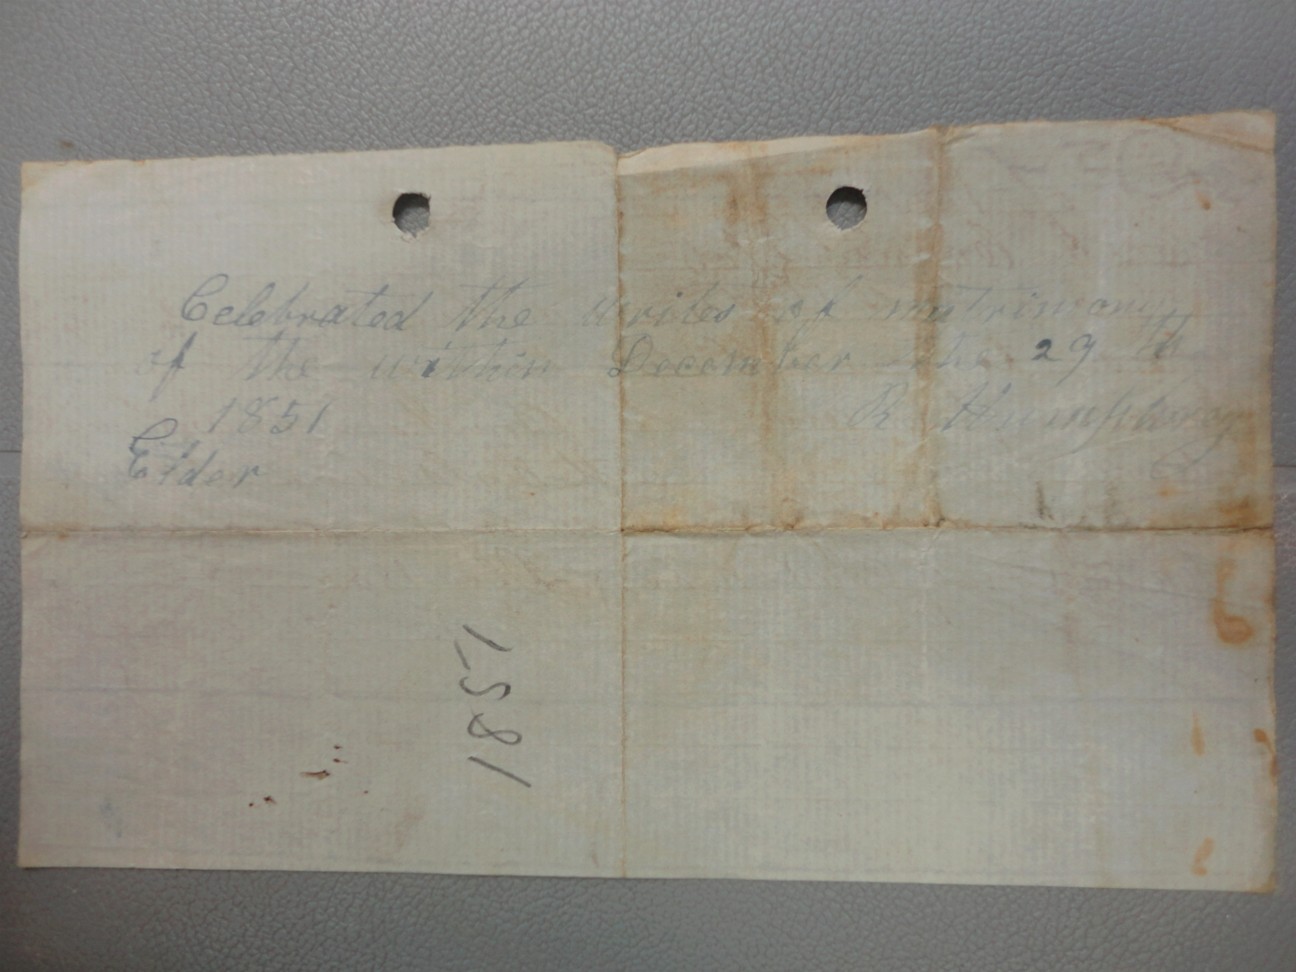 Celebrated the writes of matrimony
of the within December the 29 th
1851 R Humphrey
Elder
1851